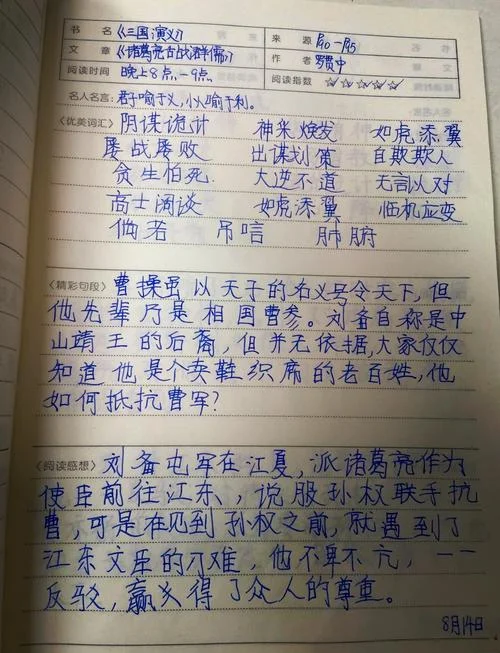 书 名 《三国演义》 来 源 P90-P95
文 章 《诸葛亮舌战群儒》 作 者 罗贯中
阅读时间 晚上8点-9点 阅读指数 ☆☆☆☆☆
名人名言: 君子喻于义,小人喻于利。
〈优美词汇〉 阴谋诡计 神采焕发 如虎添翼
屡战屡败 出谋划策 自欺欺人
贪生怕死 大逆不道 无言以对
高士阔谈 如虎添翼 临机应变
倘若 吊唁 肺腑
〈精彩句段〉 曹操虽以天子的名义号令天下,但
他先辈乃是相国曹参。刘备自称是中
山靖王的后裔,但并无依据,大家仅仅
知道他是个卖鞋织席的老百姓,他
如何抵抗曹军?
〈阅读感想〉 刘备屯军在江夏,派诸葛亮作为
使臣前往江东,说服孙权联手抗
曹,可是在见到孙权之前,就遇到了
江东文臣的刁难,他不卑不亢,一一
反驳,赢得了众人的尊重。
8月14日